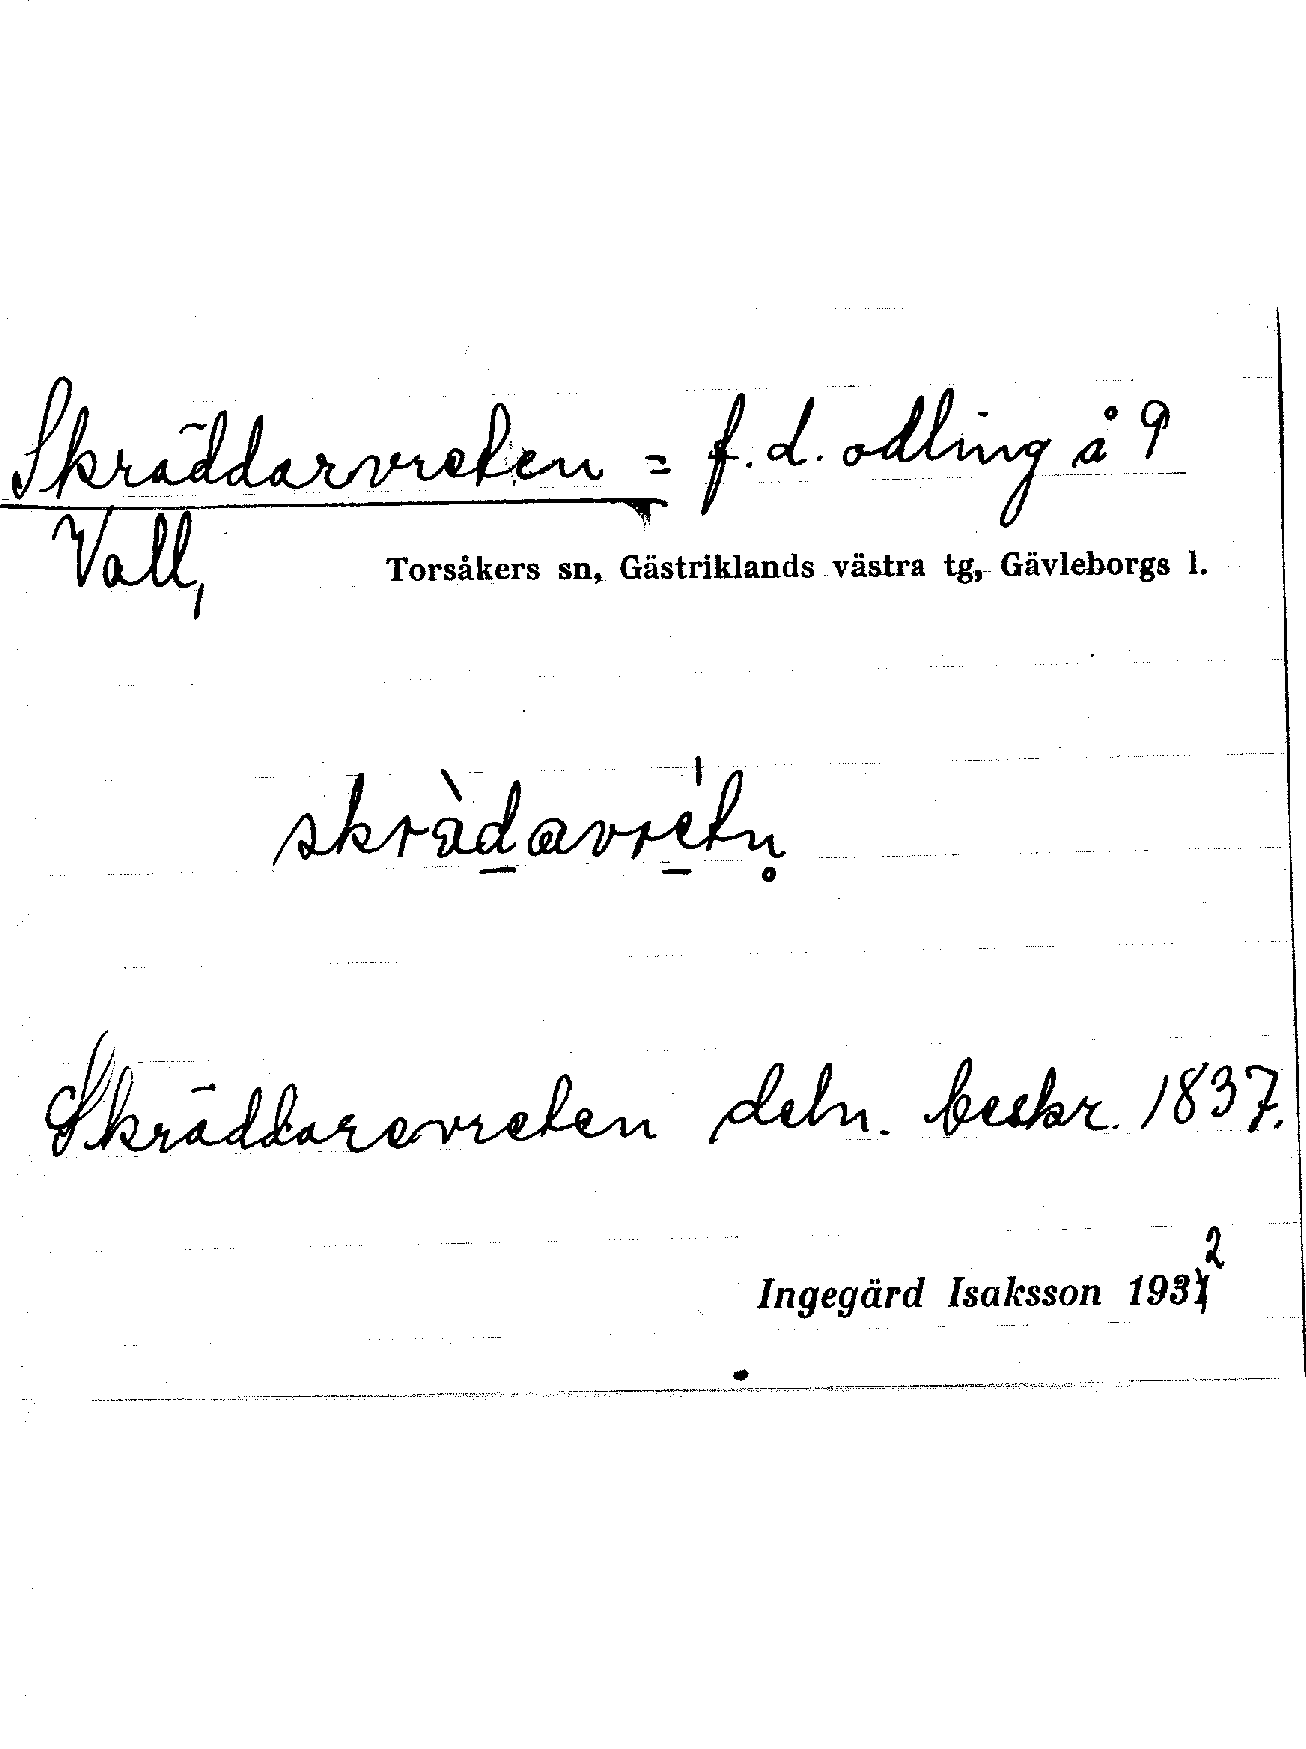 Skräddarvreten = f. d. odling å 9
Vall,
Torsåkers sn, Gästriklands västra tg, Gävleborgs l.
skrädavretn̥
Skräddarevreten deln. beskr. 1837.
Ingegärd Isaksson 1932